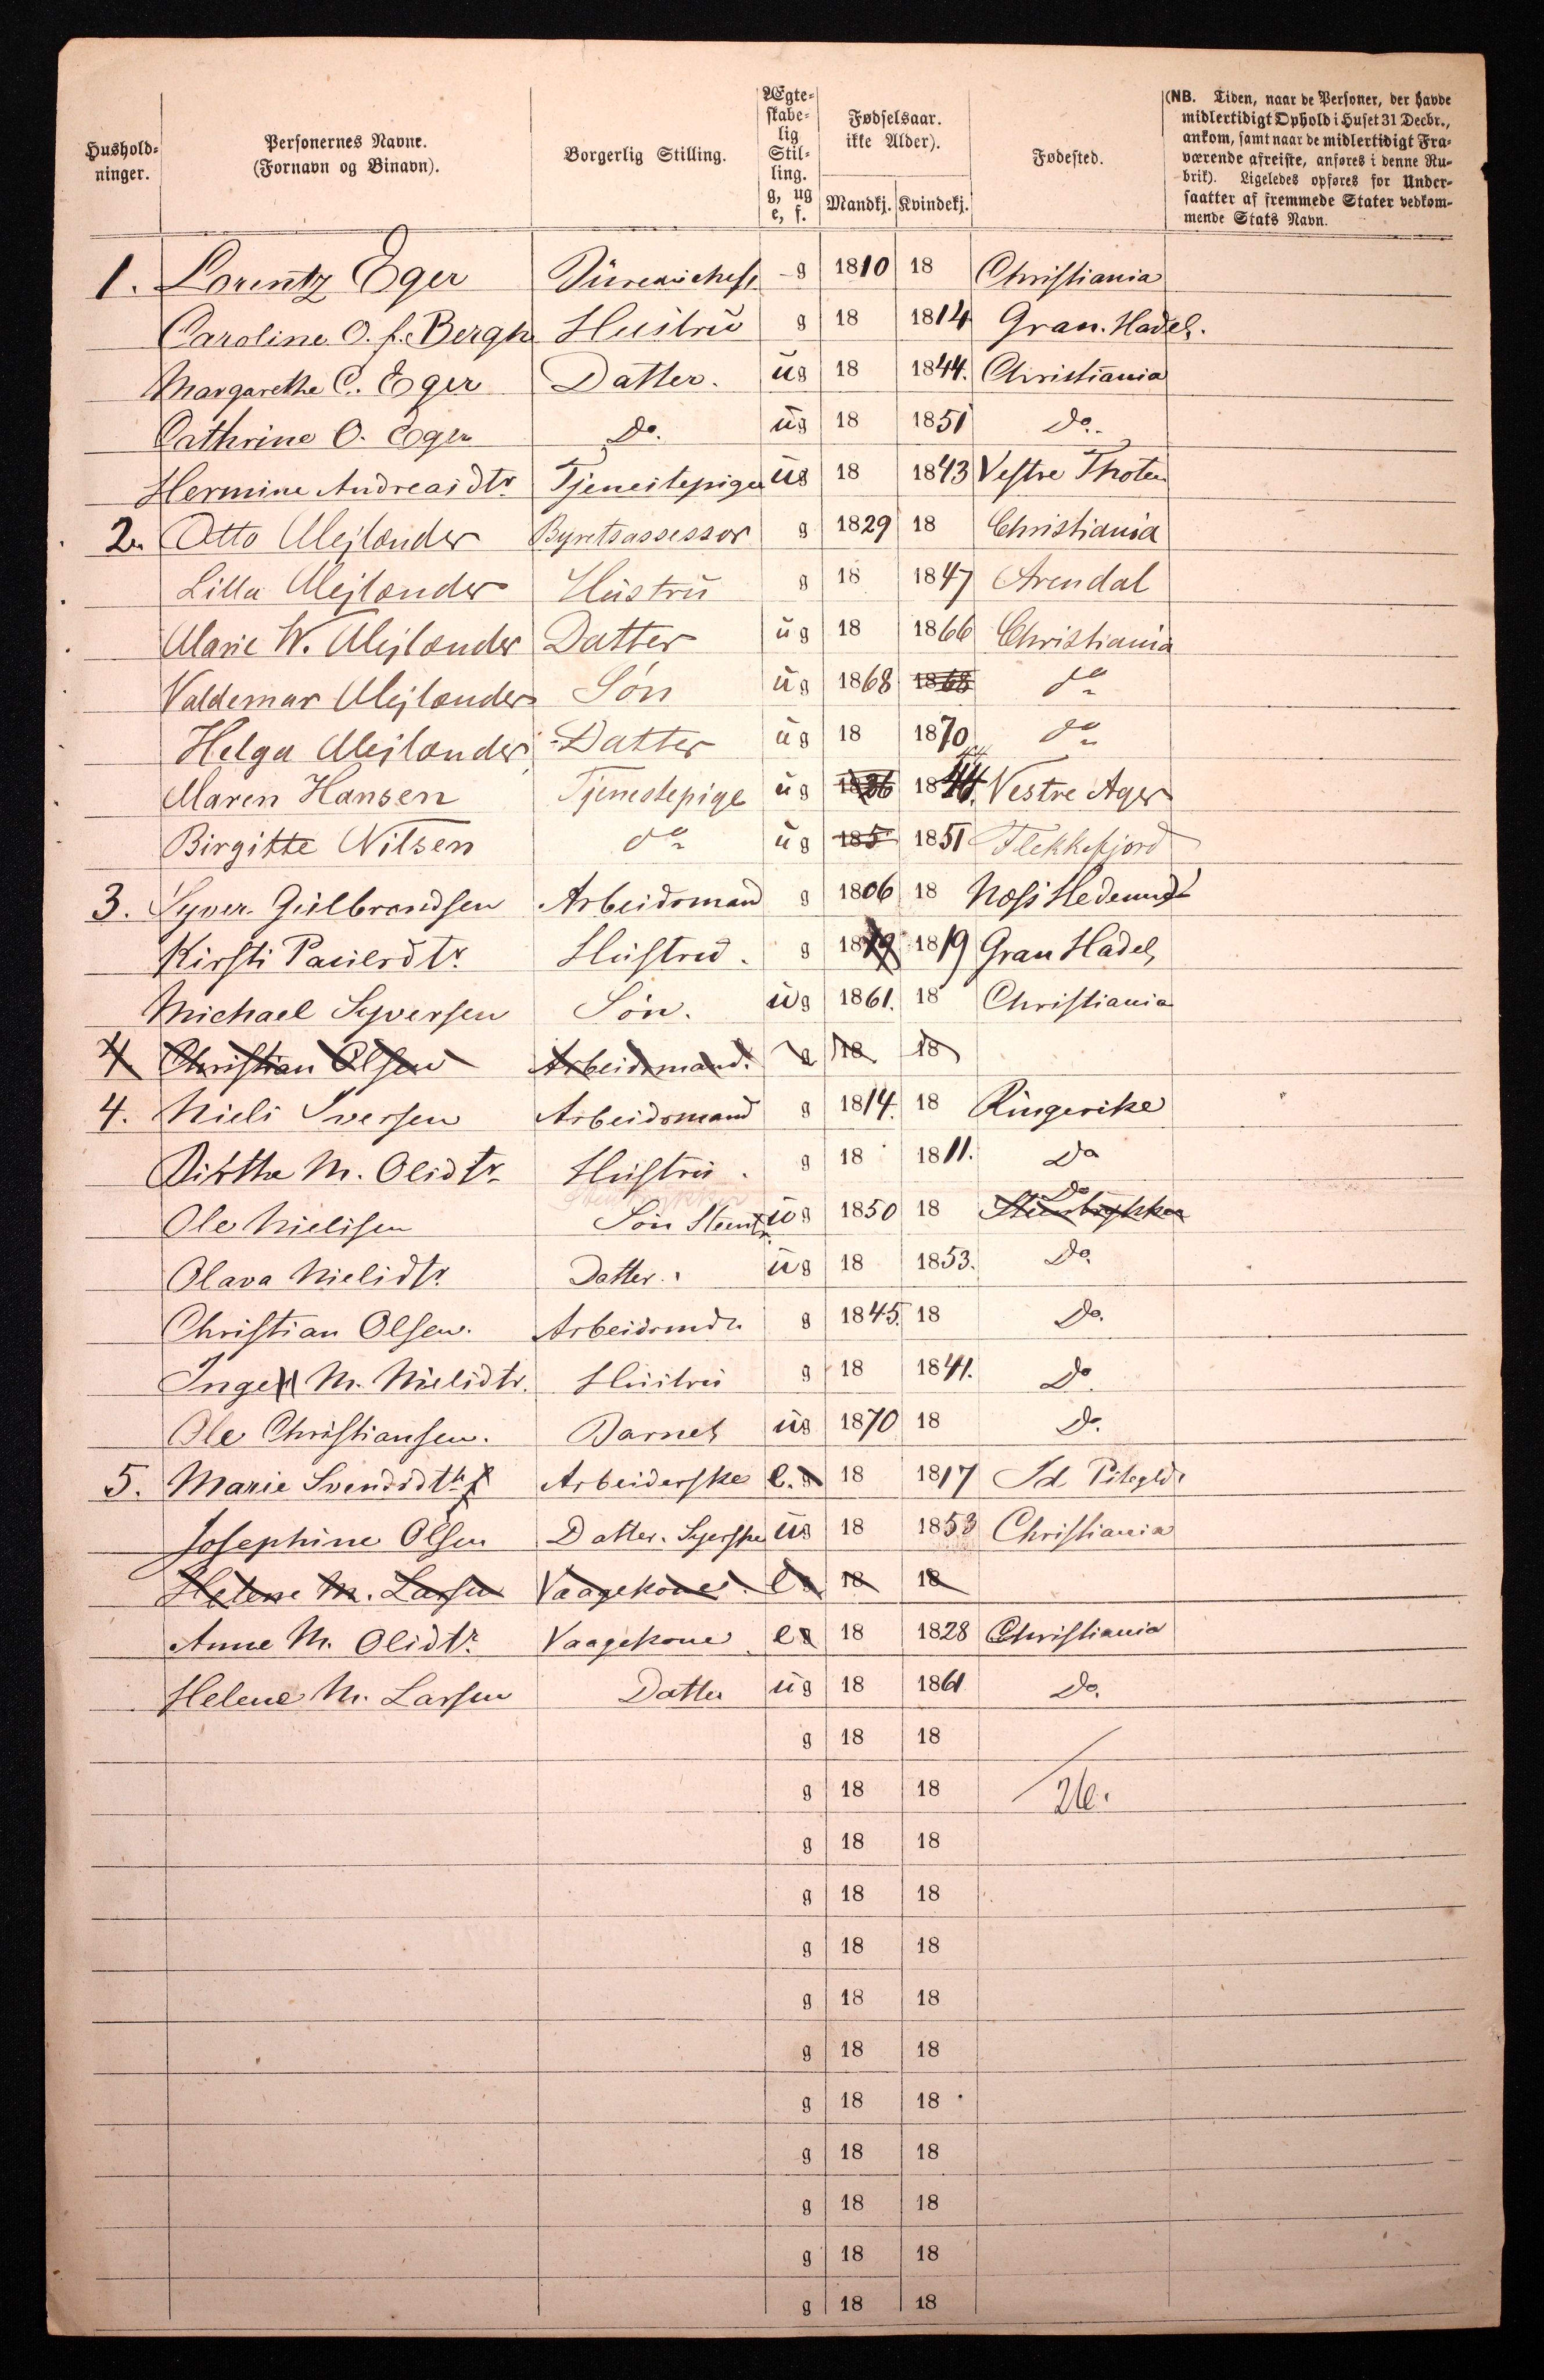 Hushold-
ninger.
Personernes Navne.
(Fornavn og Binavn).
Borgerlig Stilling.
Ægte-
skabe-
lig
Stil-
ling.
g, ug
e, f.
Fødselsaar.
ikke Alder).
Mandkj. Kvindekj.
Fødested.
(NB. Tiden, naar de Personer, der havde
midlertidigt Ophold i Huset 31 Decbr.,
ankom, samt naar de midlertidigt Fra-
værende afreiste, anføres i denne Ru-
brik). Ligeledes opføres for Under-
saatter af fremmede Stater vedkom-
mende Stats Navn.
1. Lorentz Eger Büreauchef g 1810 18 Christiania
Caroline O. f. Bergh Hustrü g 18 1814 Gran. Hadel.
Margarethe C. Eger Datter. üg 18 1844. Christiania
Cathrine O. Eger Do. üg 18 1851 Do.
Hermine Andreasdtr Tjenestepige üg 18 1843 Vestre Thoten
2. Otto Mejlænder Byretsassessor g 1829 18 Christiania
Lilla Mejlænder Hüstrü g 18 1847 Arendal
Marie W. Mejlænder Datter üg 18 1866 Christiania
Valdemar Mejlænder Søn üg 1868 1868 do
Helga Mejlænder Datter üg 18 1870 do
Maren Hansen Tjenestepige üg 1826 1844. Vestre Ager
Birgitte Nilsen do üg 185 1851 Flekkefjord
3. Syver Gülbrandsen Arbeidsmand g 1806 18 Næs Hedemk
Kirsti Paulsdtr. Hüstrü. g 1819 1819 Gran Hadel,
Michael Syversen Søn. üg 1861. 18 Christiania
4 Christian Olsen Arbeidsmand. g 18 18
4. Niels Iversen Arbeidsmand g 1814. 18 Ringerike
Birthe M. Olsdtr. Hüstrü. g 18 1811. Do
Ole Nielsen Søn Steenh. üg 1850 18 Steenbrykker Do
Olava Nielsdtr. Datter. üg 18 1853. Do.
Christian Olsen. Arbeidsmd. g 1845. 18 Do.
Inge M. Nielsdtr. Hüstrü g 18 1841. Do.
Ole Christiansen. Barneb üg 1870 18 Do.
5. Marie Svendsdtr Arbeiderske e.g 18 1817
Josephine Olsen Datter. Syerske üg 18 1853 Christiania
Helene M. Larsen Vaagekone. eg 18 18
Anne M. Olsdtr. Vaagekone eg 18 1828 Christiania
Helene M. Larsen Datter üg 18 1861 Do.
g 18 18
g 18 18 26.
g 18 18
g 18 18
g 18 18
g 18 18
g 18 18
g 18 18
g 18 18
g 18 18
g 18 18
g 18 18